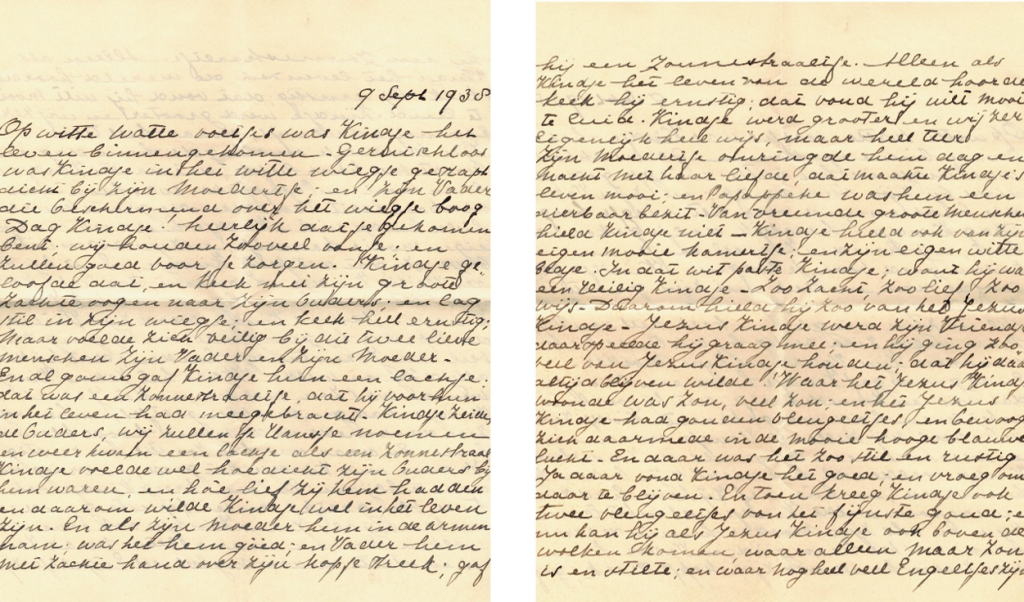 9 Sept 1938
Op witte watte voetjes was Kindje het
leven binnengekomen. Geruischloos
was Kindje in het witte wiegje gezapt
dicht bij zijn Moedertje; en zijn Vader
die beschermend over het wiegje boog
Dag Kindje! heerlijk dat je gekomen
bent; wij houden zooveel van je; en
zullen goed voor je zorgen. Kindje ge-
loofde dat, en keek met zijn groote
zachte oogen naar zijn Ouders; en lag
stil in zijn wiegje; en keek heel ernstig;
Maar voelde zich veilig bij die twee lieve
menschen zijn Vader en zijn Moeder-
En al gauw gaf Kindje hun een lachje;
dat was een Zonnestraaltje, dat hij voor hun
in het leven had meegebracht. Kindje zeiden
de Ouders, wij zullen je Hansje noemen
en weer kwam een lachje als een Zonnestraal
Kindje voelde wel hoe dicht zijn Ouders bij
hem waren, en hoe lief zij hem hadden
en daarom wilde Kindje wel in het leven
zijn. En als zijn Moeder hem in de armen
nam; was het hem goed; en Vader hem
met zachte hand over zijn kopje streek; gaf
hij een Zonnestraaltje. Alleen als
Kindje het leven van de wereld hoorde
keek hij ernstig; dat vond hij niet mooi
te luid. Kindje werd grooter en wijzer
eigenlijk heel wijs, maar heel teer
Zijn Moedertje omringde hem dag en
nacht met haar liefde, dat maakte Kindje's
leven mooi; en Papappeke was hem een
dierbaar bezit. Van vreemde groote menschen
hield Kindje niet - Kindje hield ook van zijn
eigen mooie kamertje; en zijn eigen witte
bedje. In dat wit paste Kindje; want hij was
een heilig Kindje - Zoo zacht, zoo lief, zoo
wijs - Daarom hield hij zoo van het Jezus
Kindje - Jezus Kindje werd zijn Vriendje
daar speelde hij graag mee; en hij ging zoo
veel van Jezus Kindje houden, dat hij daar
altijd blijven wilde! Waar het Jezus Kindje
woonde was zon, veel zon; en het Jezus
Kindje had gouden vleugeltjes, en bewoog
zich daarmede in de mooie hooge blauwe
lucht. En daar was het zoo stil en rustig
Ja daar vond Kindje het goed; en vroeg om
daar te blijven. En toen kreeg Kindje ook
twee vleugeltjes van het fijnste goud; en
nu kan hij als Jezus Kindje ook boven de
wolken komen waar alleen maar zon
is en stilte; en waar nog heel veel Engeltjes zijn